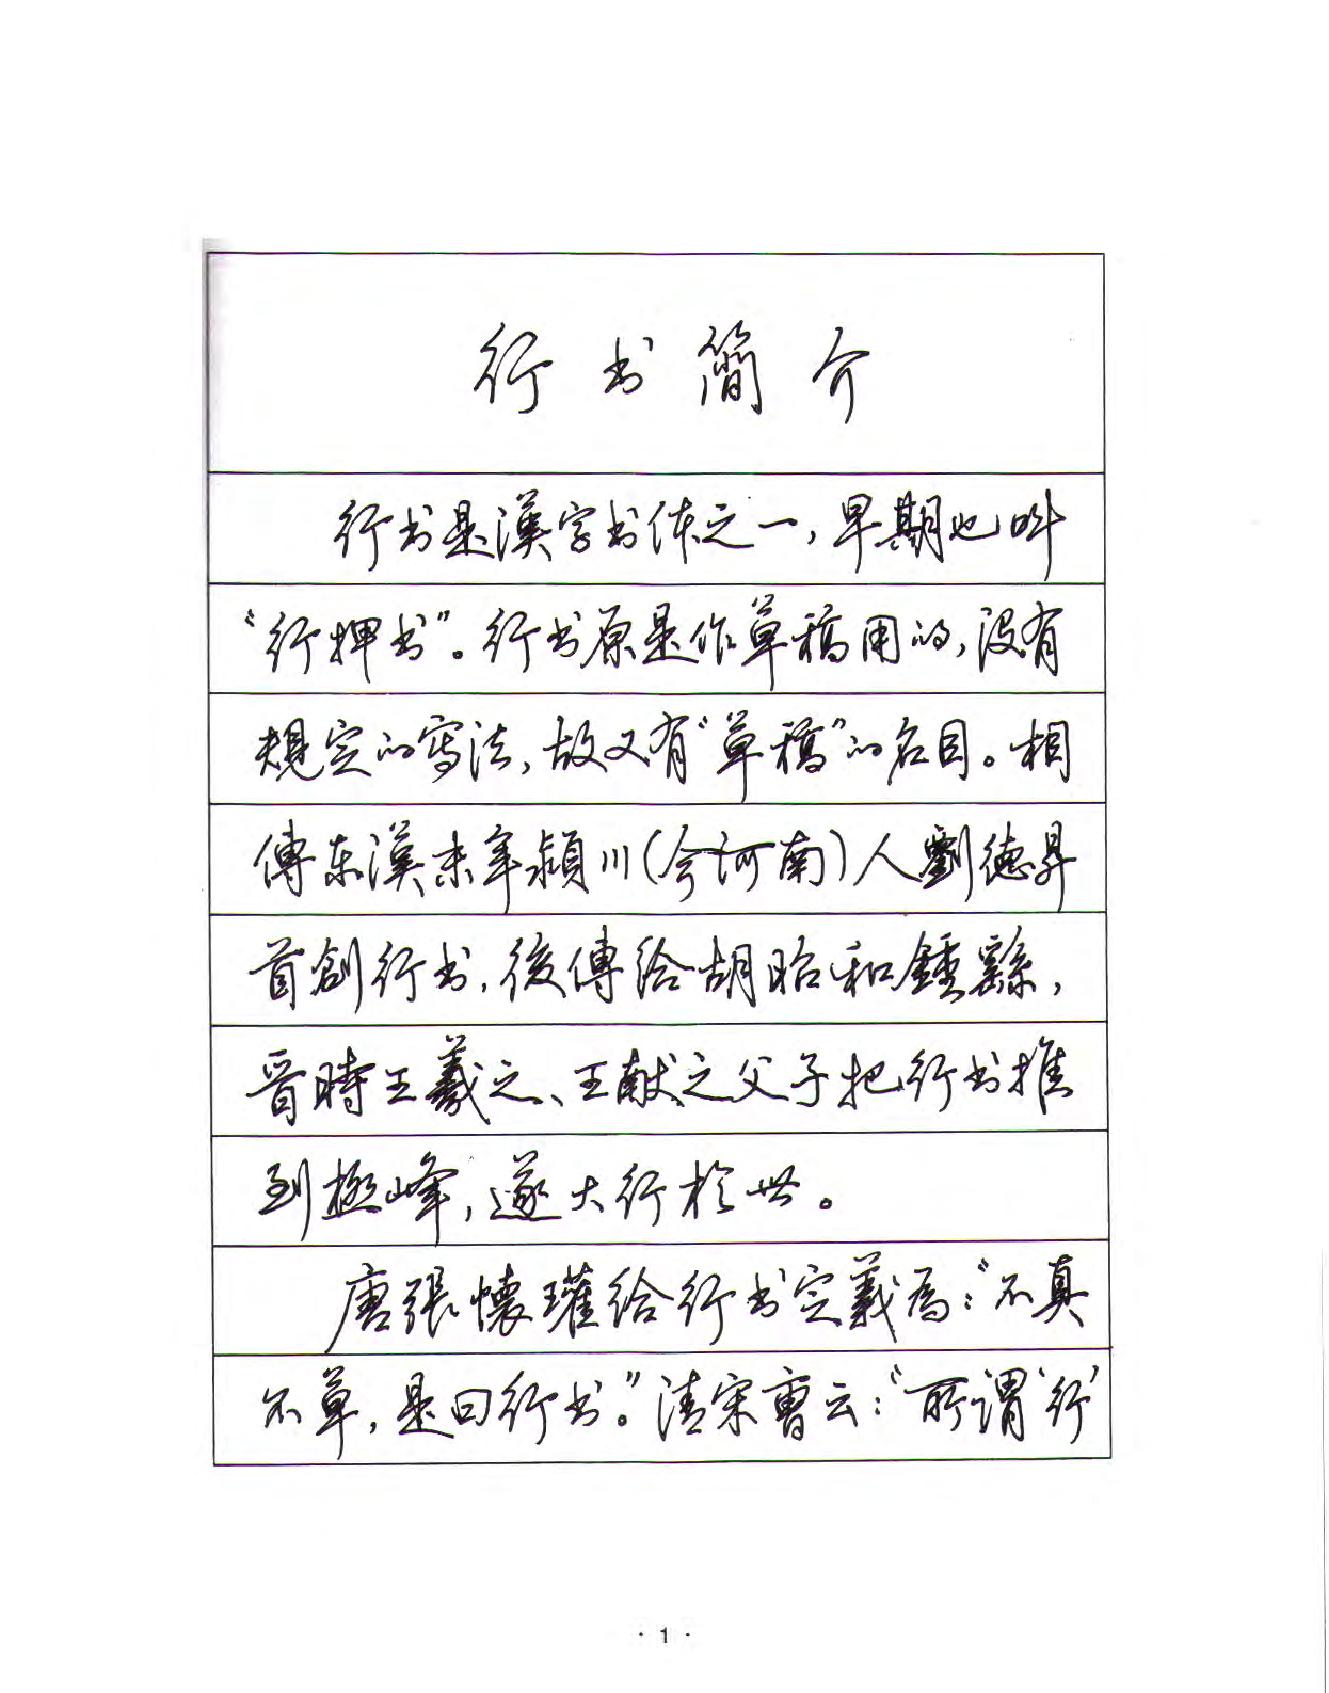 行书簡介
行书是漢字书体之一，早期也叫
“行押书”。行书原是作草稿用的，没有
規定的寫法，故又有“草稿”的名目。相
傳东漢末年潁川（今河南）人劉德昇
首創行书，後傳给胡昭和鍾繇，
晋時王羲之、王献之父子把行书推
到極峰，遂大行於世。
唐張懷瓘给行书定義為：“不真
不草，是曰行书。”清宋曹云：“所謂‘行’
·1·